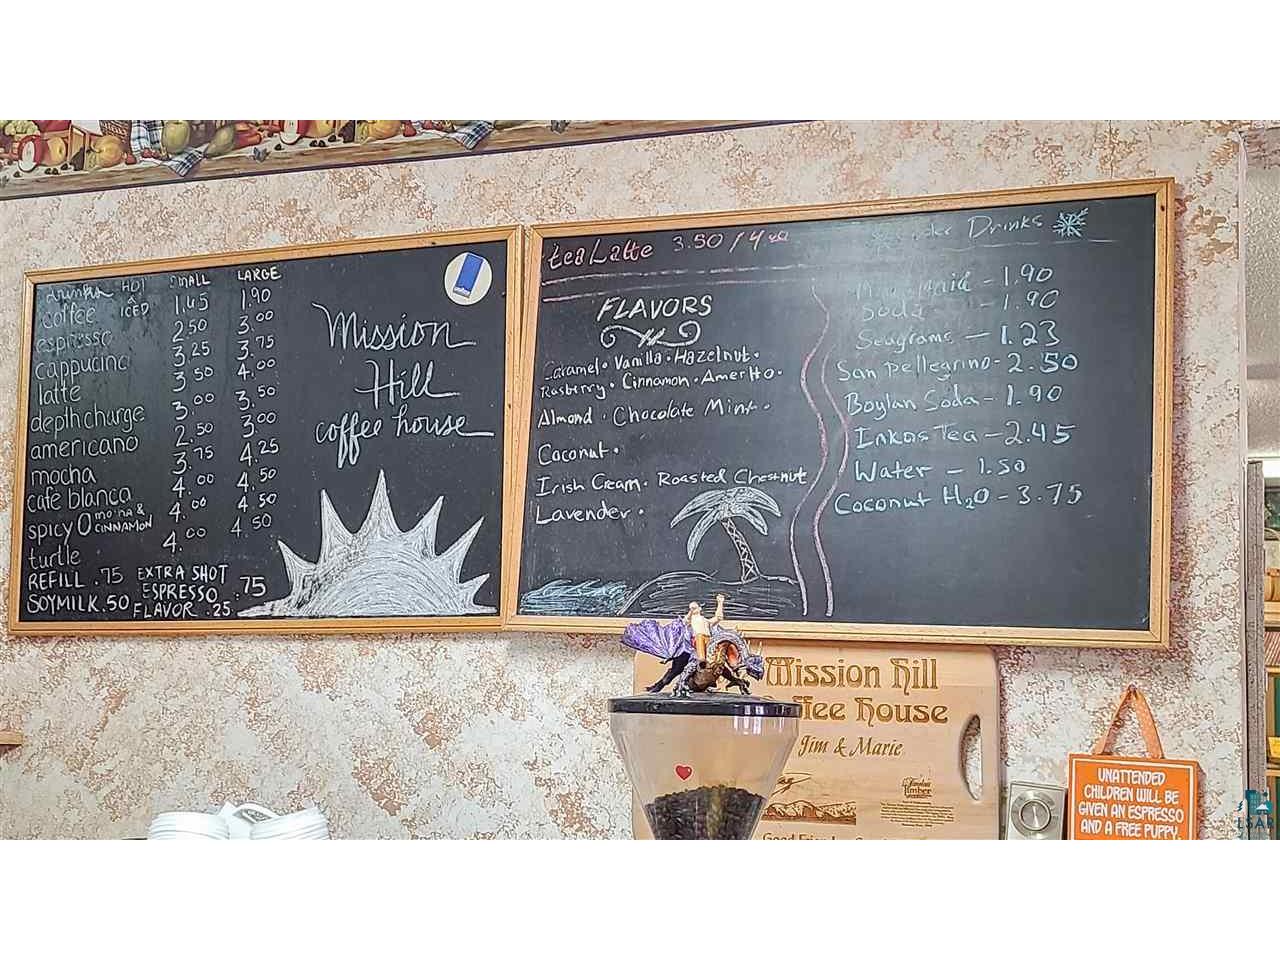 drinks HOT & ICED SMALL LARGE
coffee 1.45 1.90
espresso 2.50 3.00
cappucino 3.25 3.75
latte 3.50 4.00
depthcharge 3.00 3.50
americano 2.50 3.00
mocha 3.75 4.25
cafe blanca 4.00 4.50
spicy O mocha & CINNAMON 4.00 4.50
turtle 4.00 4.50
REFILL .75 EXTRA SHOT
ESPRESSO .75
SOYMILK .50 FLAVOR .25
Mission
Hill
coffee house
tea Latte 3.50 / 4.00
FLAVORS
Caramel • Vanilla • Hazelnut •
Rasberry • Cinnamon • Ameretto •
Almond • Chocolate Mint •
Coconut •
Irish Cream • Roasted Chestnut
Lavender •
Drinks
Maid - 1.90
Soda - 1.90
Seagrams - 1.23
San Pellegrino - 2.50
Boylan Soda - 1.90
Inkas Tea - 2.45
Water - 1.50
Coconut H2O - 3.75
Mission Hill
ffee House
Jim & Marie
UNATTENDED
CHILDREN WILL BE
GIVEN AN ESPRESSO
AND A FREE PUPPY.
LSAR